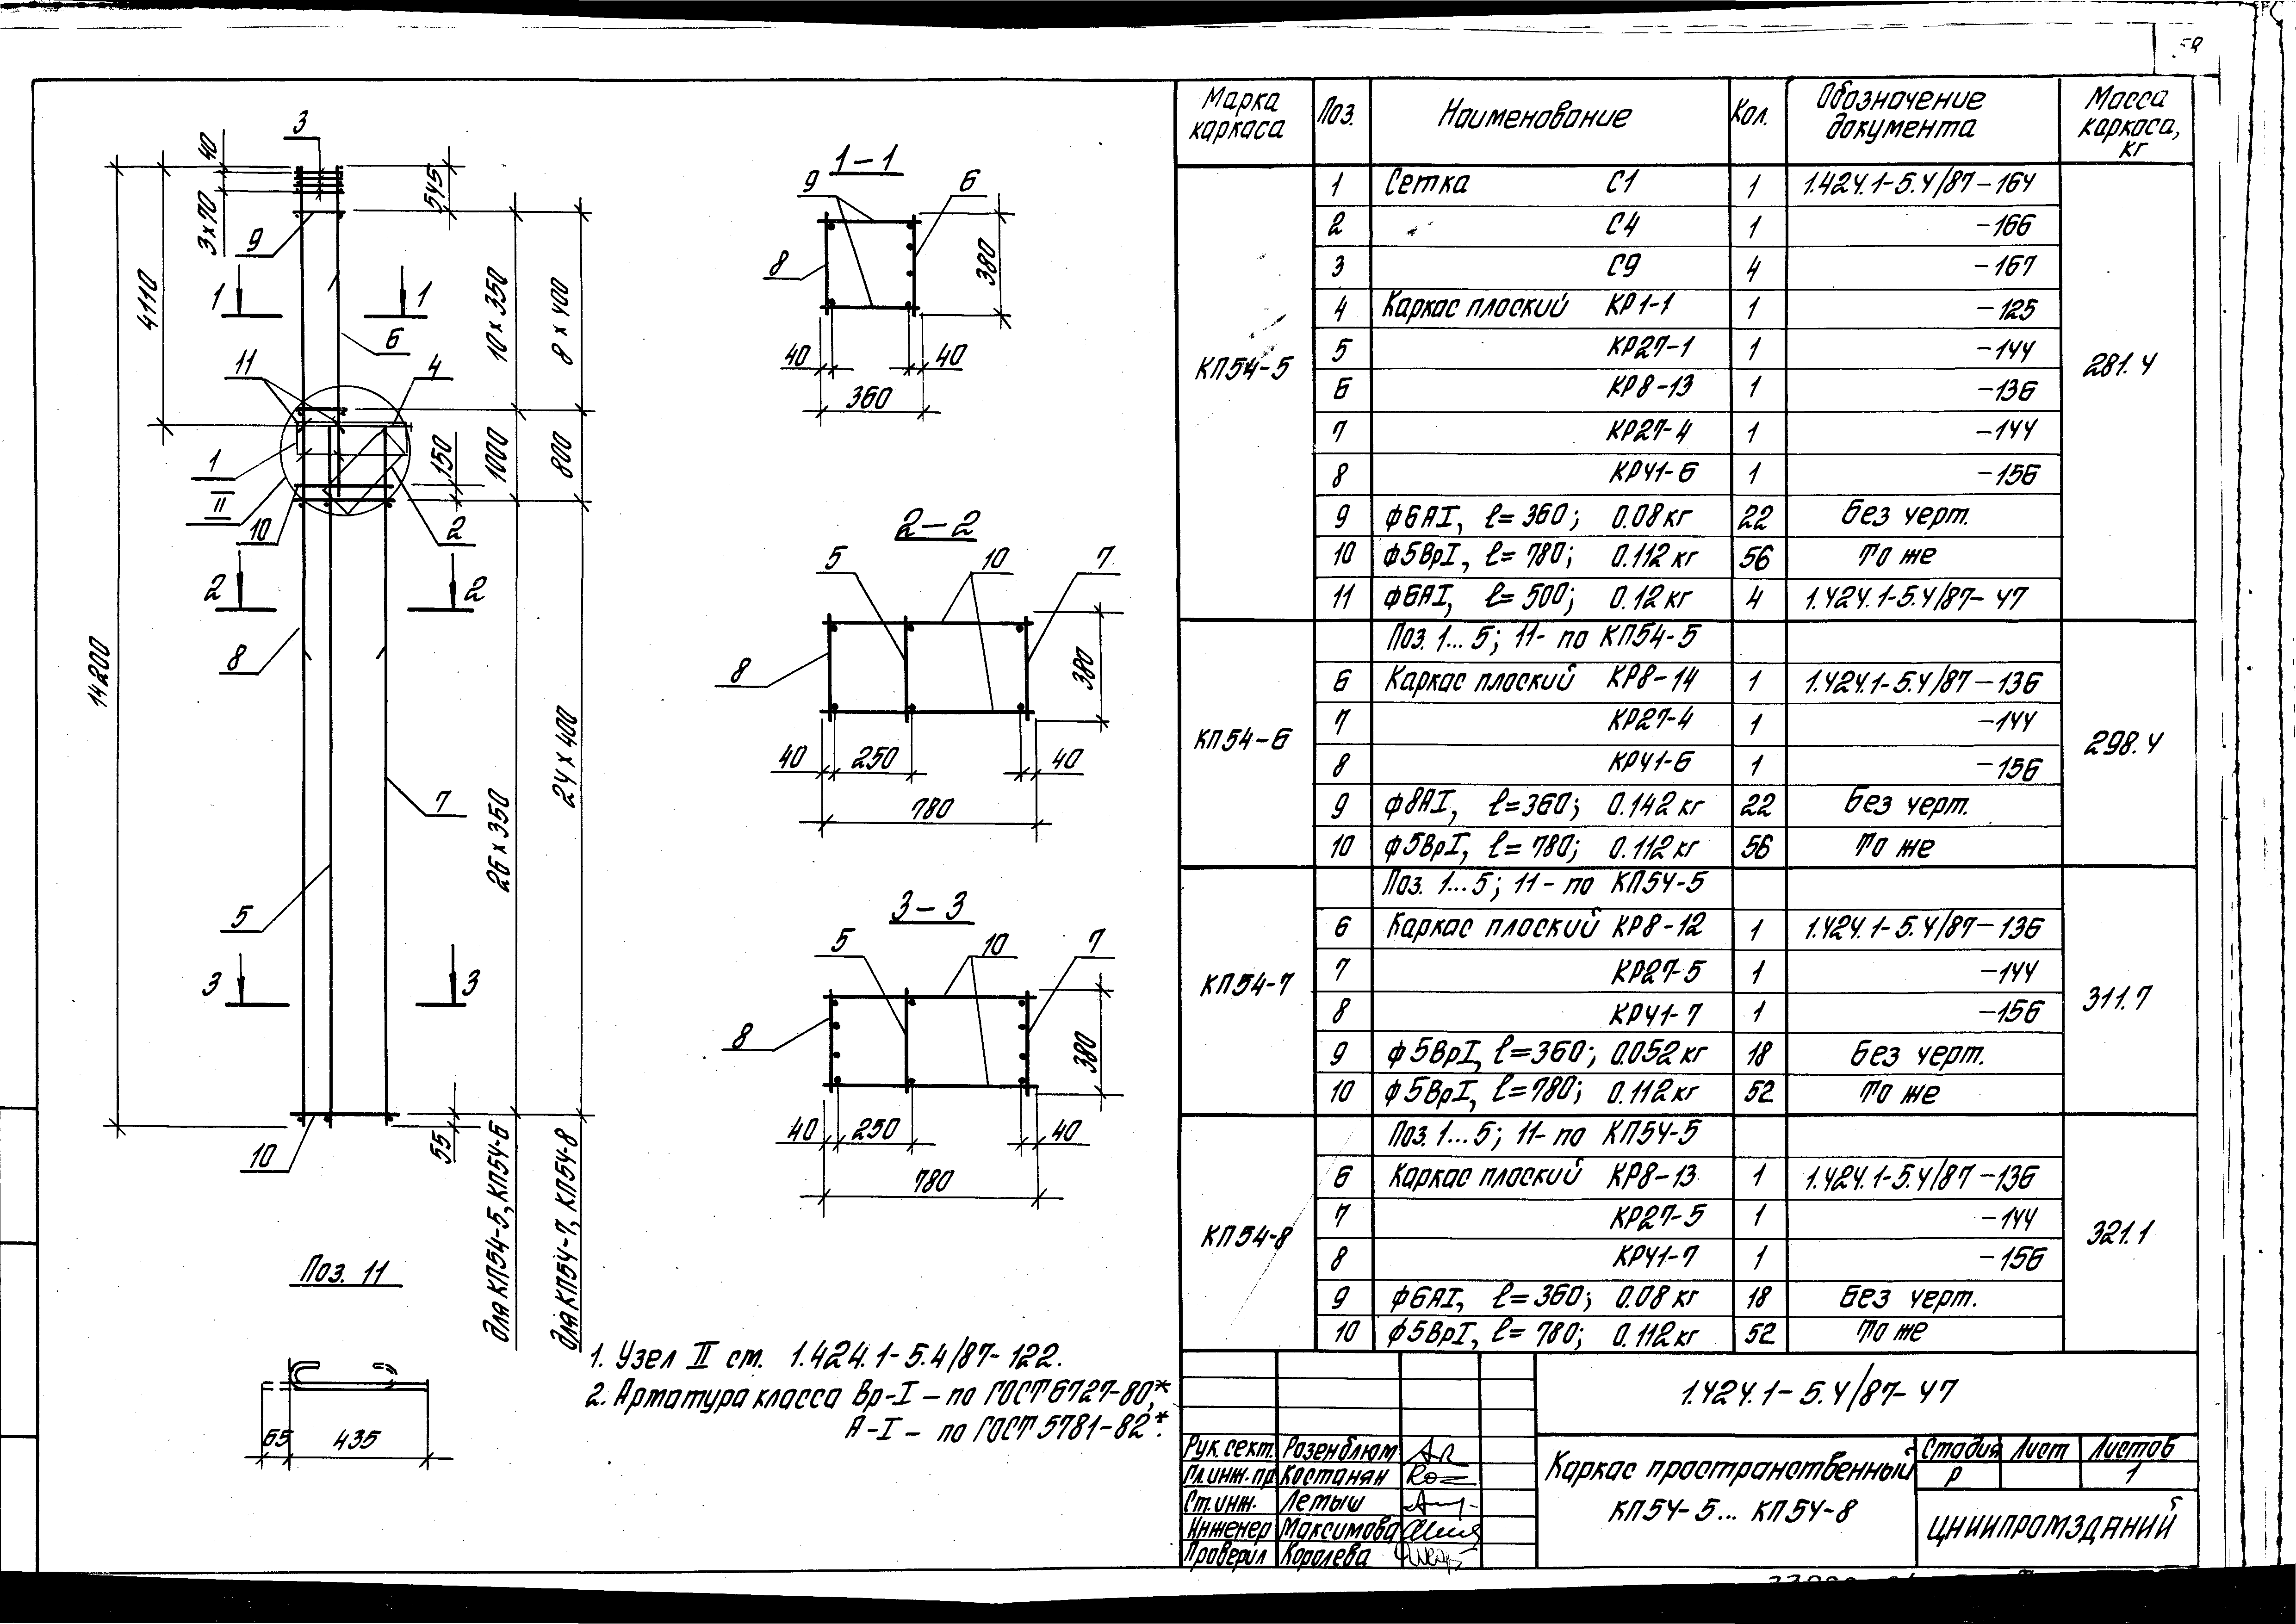 3
40
3×70
545
4110
9
1 1
10×350
8×400
6
11
4
1
II
150
1000
800
10
2
2 2
8
14200
24×400
7
26×350
5
3 3
10
55
для КП54-5, КП54-6
для КП54-7, КП54-8
Поз. 11
65 435
1-1
9 6
8
380
40 40
360
2-2
5 10 7
8
380
40 250 40
780
3-3
5 10 7
8
380
40 250 40
780
1. Узел II см. 1.424.1-5.4/87-122.
2. Арматура класса Вр-I – по ГОСТ 6727-80,*
А-I – по ГОСТ 5781-82*.
Марка каркаса Поз. Наименование Кол. Обозначение документа Масса каркаса, кг
КП54-5 281.4
1 Сетка С1 1 1.424.1-5.4/87-164
2 С4 1 -166
3 С9 4 -167
4 Каркас плоский КР1-1 1 -125
5 КР27-1 1 -144
6 КР8-13 1 -136
7 КР27-4 1 -144
8 КР41-6 1 -156
9 ф6АI, ℓ=360; 0.08кг 22 Без черт.
10 ф5ВрI, ℓ=780; 0.112кг 56 То же
11 ф6АI, ℓ=500; 0.12кг 4 1.424.1-5.4/87-47
КП54-6 298.4
Поз. 1...5; 11- по КП54-5
6 Каркас плоский КР8-14 1 1.424.1-5.4/87-136
7 КР27-4 1 -144
8 КР41-6 1 -156
9 ф8АI, ℓ=360; 0.142кг 22 Без черт.
10 ф5ВрI, ℓ=780; 0.112кг 56 То же
КП54-7 311.7
Поз. 1...5; 11- по КП54-5
6 Каркас плоский КР8-12 1 1.424.1-5.4/87-136
7 КР27-5 1 -144
8 КР41-7 1 -156
9 ф5ВрI, ℓ=360; 0.052кг 18 Без черт.
10 ф5ВрI, ℓ=780; 0.112кг 52 То же
КП54-8 321.1
Поз. 1...5; 11- по КП54-5
6 Каркас плоский КР8-13 1 1.424.1-5.4/87-136
7 КР27-5 1 -144
8 КР41-7 1 -156
9 ф6АI, ℓ=360; 0.08кг 18 Без черт.
10 ф5ВрI, ℓ=780; 0.112кг 52 То же
1.424.1-5.4/87-47
Рук. сект. Розенблюм
Гл.инж.пр Костанян
Ст.инж. Летыш
Инженер Максимова
Проверил Королева
Каркас пространственный
КП54-5... КП54-8
Стадия Лист Листов
Р 1
ЦНИИПРОМЗДАНИЙ